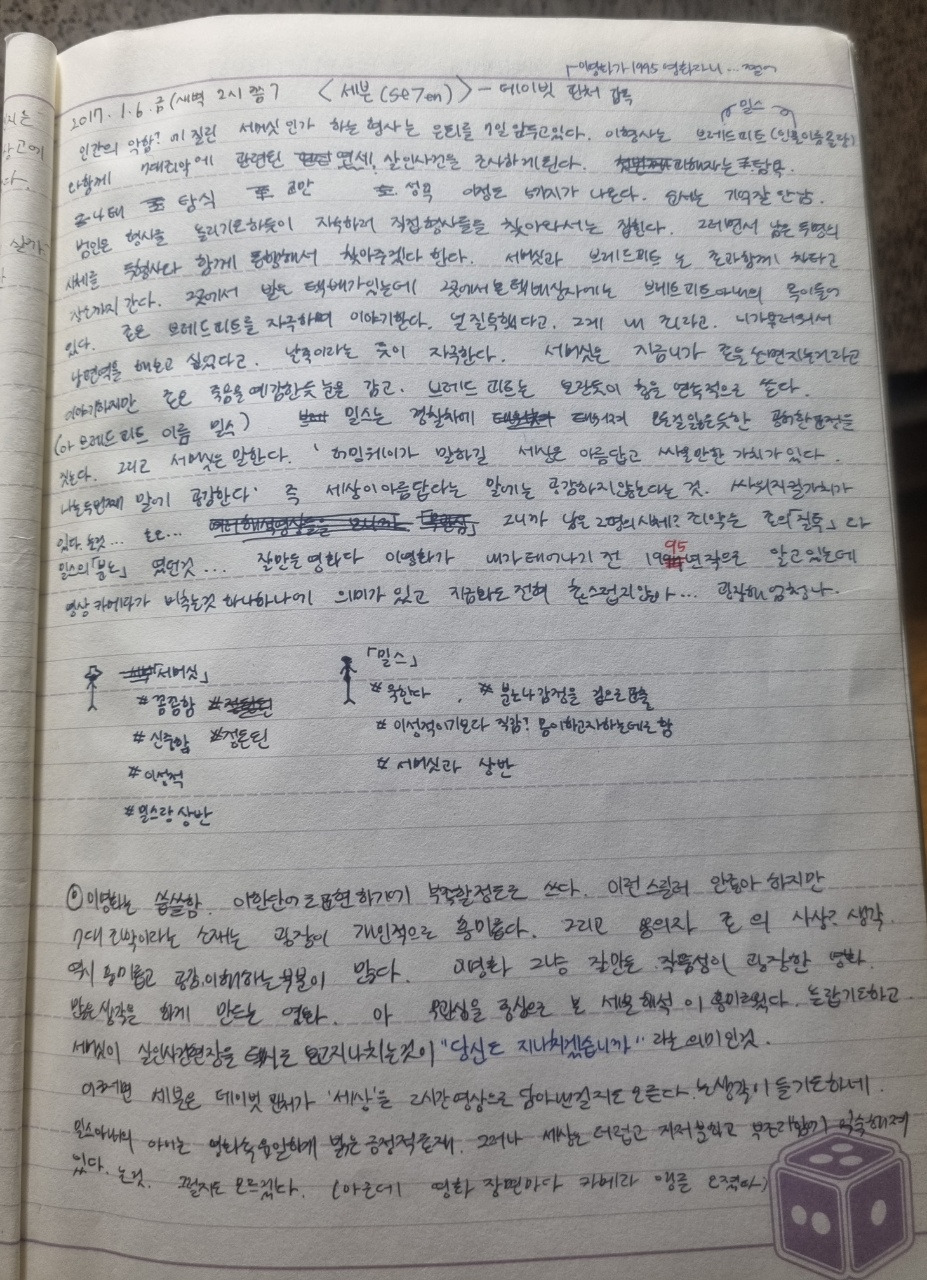 이영화가 1995 영화라니... 쩔어
2017. 1. 6. 금 (새벽 2시 쯤) <세븐(se7en)> - 데이빗 핀처 감독
밀스
인간의 악함? 에 질린 서머싯 인가 하는 형사는 은퇴를 7일 앞두고있다. 이형사는 브레드피트(인물이름몰라)
와함께 7대죄악에 관련된 연쇄! 살인사건을 조사하게된다. 피해자는 탐욕.
나태 탐식 교만 성욕 이정도 5가지가 나온다. 순서는 기억잘안남.
범인은 형사를 놀리기로하듯이 자수하러 직접형사들을 찾아와서는 잡힌다. 그러면서 남은 두명의
시체를 두형사와 함께 동행해서 찾아주겠다 한다. 서머싯과 브레드피트 는 존과함께 차타고
장소까지 간다. 그곳에서 받은 택배가있는데 그곳에서온택배상자에는 브레드피트아내의 목이들어
있다. 존은 브레드피트를 자극하며 이야기한다. 널질투했다고. 그게 내 죄라고. 니가부러워서
남편역을 해보고 싶었다고. 날죽이라는 듯이 자극한다. 서머싯은 지금니가 존을쏘면지는거라고
이야기하지만 존은 죽음을예감한듯 눈을 감고. 브레드 피트는 보란듯이 총을 연속적으로 쏜다.
(아 브레드피트 이름 밀스) 밀스는 경찰차에 태워져 모든걸잃은듯한 공허한표정을
짓는다. 그리고 서머싯은말한다. '헤밍웨이가 말하길 세상은 아름답고 싸울만한 가치가 있다.
나는두번째 말에 공감한다' 즉 세상이아름답다는 말에는 공감하지않는다는 것. 싸워지킬가치가
있다.는것... 흐흐... 여러해석영상들을 보니까 그니까 남은 2명의시체? 죄악은 존의「질투」와
밀스의「분노」 였던것... 잘만든영화다 이영화가 내가태어나기 전 1995년작으로 알고있는데
영상 카메라가 비추는것 하나하나에 의미가 있고 지금봐도 전혀 촌스럽지않아... 굉장해 엄청나.
「서머싯」
#꼼꼼함
#신중함 #정돈된
#이성적
#밀스랑 상반
「밀스」
#욱한다. #분노나 감정을 겉으로표출
#이성적이기보다 직감? 몸이하고자하는데로함
#서머싯과 상반
이영화는 씁쓸함. 이한단어로표현하기가 부족할정도로 쓰다. 이런스릴러 안좋아하지만
7대 죄악이라는 소재는 굉장히 개인적으로 흥미롭다. 그리고 용의자 존 의 사상? 생각.
역시 흥미롭고 공감,이해하는부분이 많다. 이영화 그냥 잘만든. 작품성이 굉장한 영화.
많은생각을 하게 만드는 영화. 아 무관심을 중심으로 본 세븐해석 이 흥미로웠다. 놀랍기도하고
서머싯이 살인사건현장을 택시로 보고지나치는것이 "당신도 지나치겠습니까" 라는의미인것.
어쩌면 세븐은 데이빗 핀처가 '세상'을 2시간영상으로 담아낸걸지도모른다.는생각이 들기도하네.
밀스아내의 아이는 영화속유일하게 밝은 긍정적존재. 그러나 세상은더럽고 지저분하고 부조리함이 익숙해져
있다. 는것. 일지도 모르겠다. (아근데 영화 장면마다 카메라 앵글 오졌다)